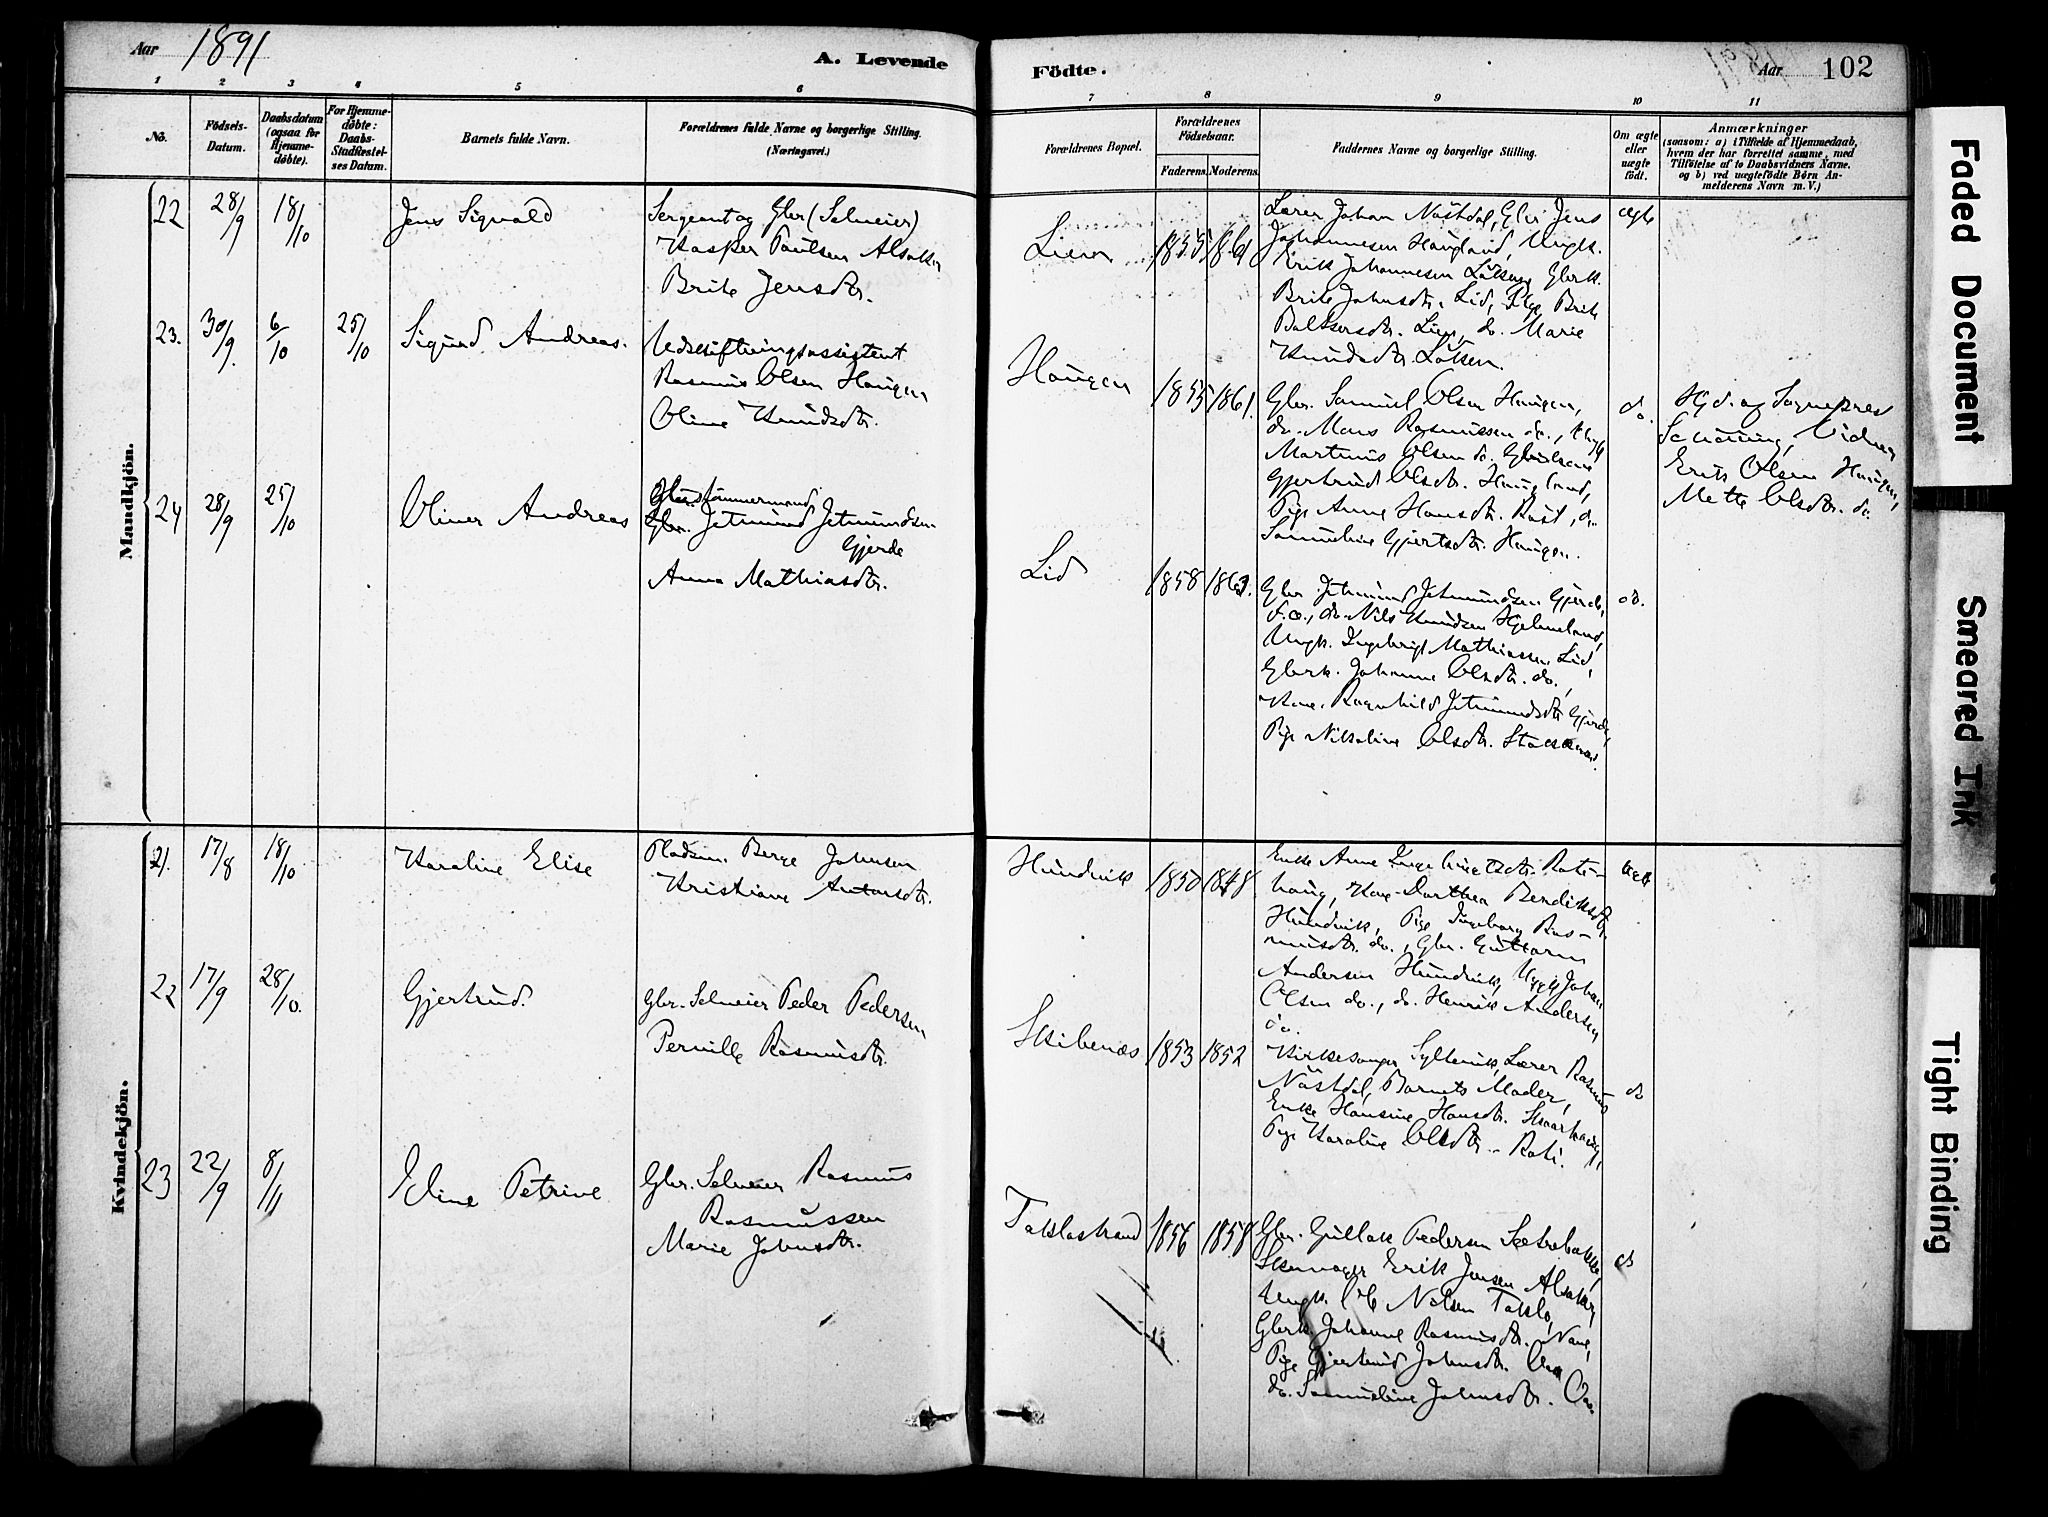 Aar 1891
A. Levende
Födte.
Aar 102
1 2 3 4 5 6
7 8 9 10 11
No.
Födsels-
Datum.
Daabsdatum
(ogsaa for
Hjemme-
döbte).
For Hjemme-
döbte:
Daabs-
Stadfæstel-
ses Datum.
Barnets fulde Navn.
Forældrenes fulde Navne og borgerlige Stilling.
(Næringsvei.)
Forældrenes Bopæl.
Forældrenes
Födselsaar.
Faderens. Moderens.
Faddernes Navne og borgerlige Stilling.
Om ægte
eller
uægte
födt.
Anmærkninger
(saasom: a) i Tilfælde af Hjemmedaab,
hvem der har forrettet samme, med
Tilföielse af to Daabsvidners Navne.
og b) ved uægtefödte Börn An-
melderens Navn m. V.)
Mandkjön.
22 28/9 18/10
Jens Sigvald
Sergeant og Gbr (Selveier)
Kasper Paulsen Alsaker
Brite Jensdtr.
Lien
1855 1861
Lærer Johan Nöstdal, Gbr Jens
Johannesen Haugland, Ungk.
Erik Johannesen Lötsen, Gbrk.
Brite Johnsdtr. Lid, Pige Brite
Baltsersdtr. Lien, do. Marie
Knudsdtr. Lötsen.
ægte
23. 30/9. 6/10 25/10
Sigurd Andreas.
Udskiftningsassistent
Rasmus Olsen Haugen
Oline Knudsdtr.
Haugen
1855 1861.
Gbr. Samuel Olsen Haugen,
do. Mons Rasmussen do., Ungk
Martinus Olsen do.
Gjertrud Olsdtr. Haugland,
Pige Anne Hansdtr. Röst, do.
Samueline Gjertsdtr. Haugen.
do.
Hjd. af Sognepræst
Schöning, Vidner
Erik Olsen Haugen,
Mette Olsdtr. do.
24 28/9 25/10
Oliver Andreas
Gbr. Jetmund Jetmundsen
Gjerde
Anna Mathiasdtr.
Lid
1858 1863.
Gbr. Jetmund Jetmundsen Gjerde,
F. o., do. Nils Knudsen Hjelmeland,
Ungk. Ingebrigt Mathiassen Lid,
Gbrk. Johanne Olsdtr. do.,
Kone Ragnhild Jetmundsdtr Gjerde,
Pige Nilsoline Olsdtr.
do.
Kvindekjön.
21. 17/8 18/10
Karoline Elise
Pladsm. Berge Johnsen
Kristiane Antonsdtr.
Hundvik
1850 1848
Enke Anne Ingebrigtsdtr. Roti-
haug, Kone Dorthea Bendiksdtr.
Hundvik, Pige Ingeborg Ras-
musdtr. do., Gbr. Guttorm
Andersen Hundvik, Ungk Johan
Olsen do., do. Henrik Andersen
do.
ægte
22 17/9 28/10.
Gjertrud.
Gbr. Selveier Peder Pedersen
Pernille Rasmusdtr.
Skibenæs
1853 1852
Kirkesanger Syltevik, Lærer Rasmus
Nöstdal, Barnets Moder,
Enke Hansine Hansdtr. Skaarhaug,
Pige Karoline Olsdtr. Roti.
do
23 22/9 8/11
Eline Petrine
Gbr. Selveier Rasmus
Rasmussen
Marie Johnsdtr.
Taklostrand
1856 1858
Gbr. Gullak Pedersen Sætrebakke,
Skomager Erik Jensen Alsaker,
Ungk. Ole Nilsen Taklo,
Gbrk. Johanne Rasmusdtr. Nave,
Pige Gjertrud Johnsdtr. Oen
do. Samueline Johnsdtr. Oen.
do
Faded Document
Smeared Ink
Tight Binding